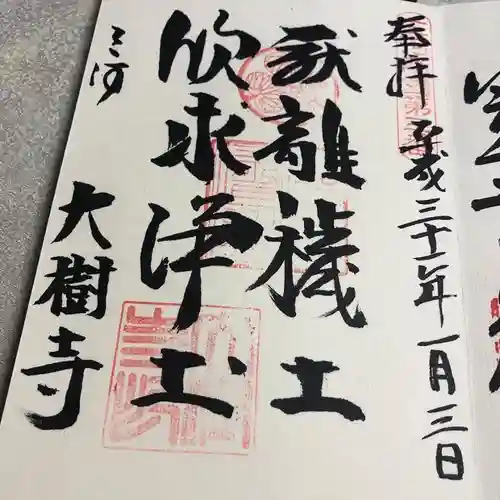 奉拝 平成三十一年一月三日
厭離穢土
欣求浄土
三河
大樹寺